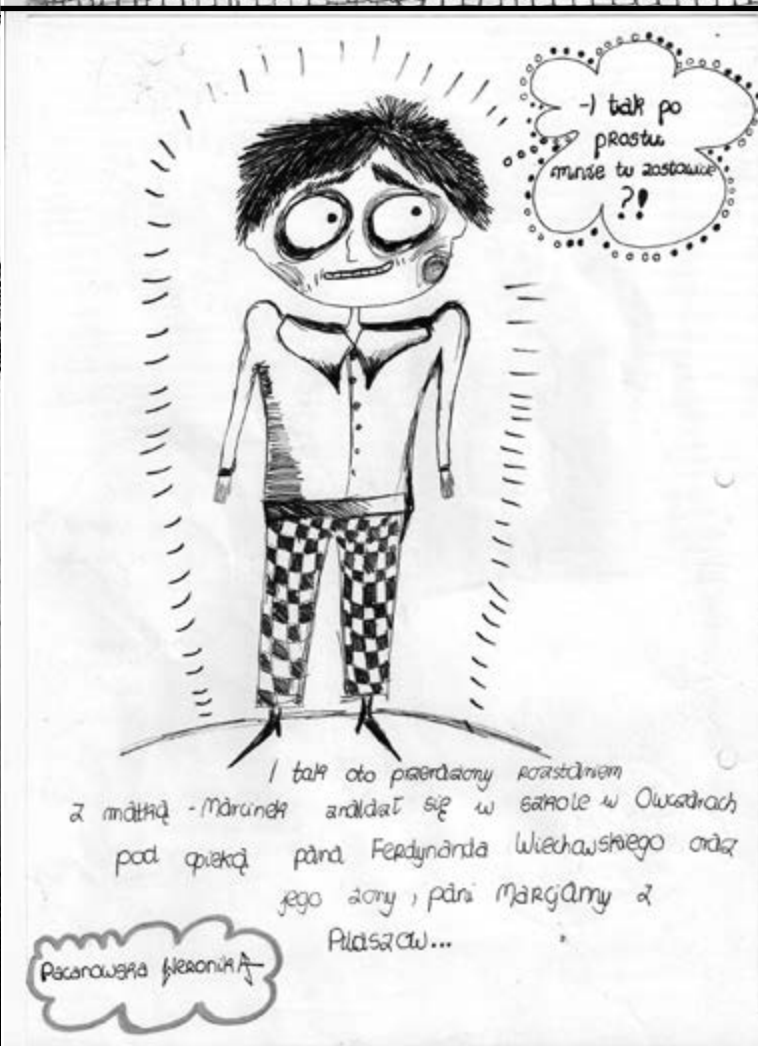 -I tak po
prostu
mnie tu zostawicie
?!
I tak oto przerażony rozstaniem
z matką - Marcinek znalazł się w szkole w Owczarach
pod opieką pana Ferdynanda Wiechowskiego oraz
jego żony, pani Marcjanny z
Pilaszów...
Pacanowska Weronika